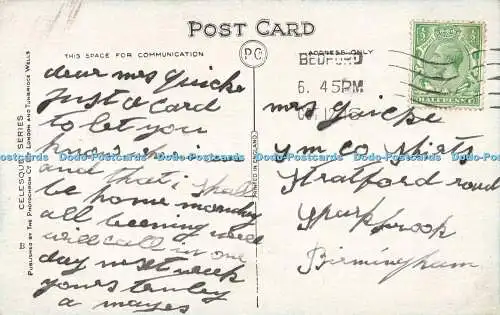 POST CARD
THIS SPACE FOR COMMUNICATION
PG
ADDRESS ONLY
BEDFORD
6. 45PM
HALFPENNY
dear mrs Quicke
Just a card
to let you
and that i shall
be home monday
all beeing well
will call in one
day next week
yours truley
a mayes
mrs Quicke
y m co Shirts
Stratford road
Sparkbrook
Birmingham
CELESQUE SERIES
PUBLISHED BY THE PHOTOCHROM CO. LTD. LONDON AND TUNBRIDGE WELLS
B
PRINTED IN ENGLAND
Postcards-Dodo-Postcards-Dodo-Postcards-Dodo-Postcards-Dodo-Postcards